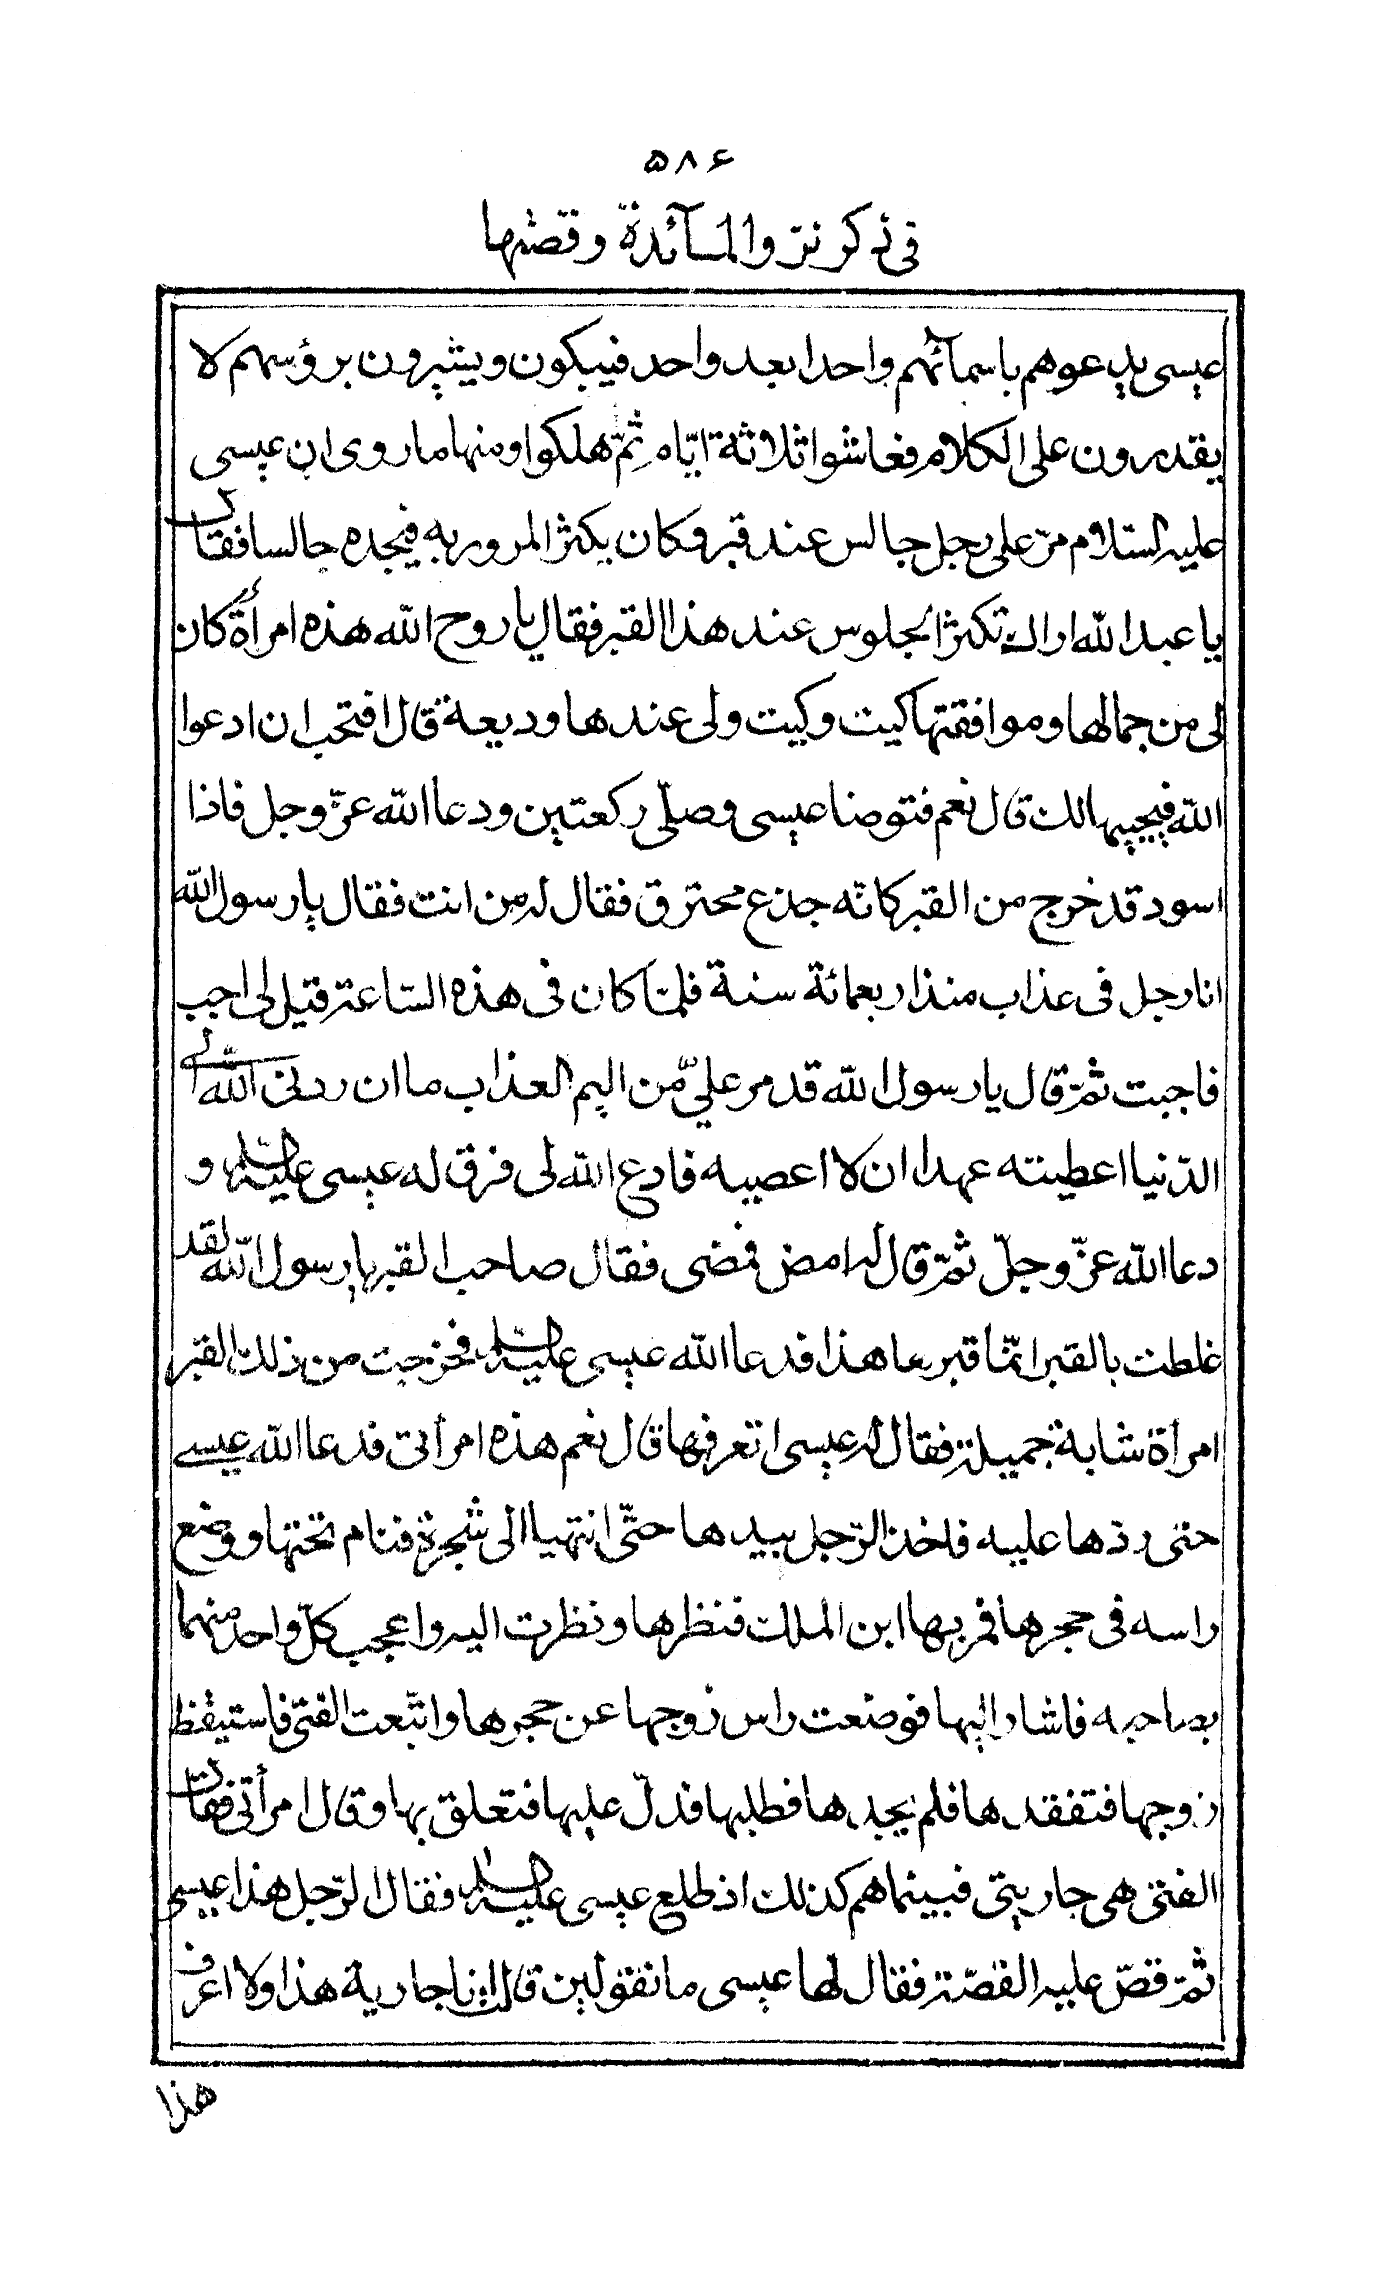 ۵۸۶
فی ذکر نزول المآئدة وقصّتها
عیسی یدعوهم باسمآئهم واحدا بعد واحد فیبکون ویشیرون برؤسهم لا
یقدرون علی الکلام فعاشوا ثلاثة ایّام ثمّ هلکوا ومنها ما روی ان عیسی
علیه السّلام مرّ علی رجل جالس عند قبر وکان یکثر المرور به فیجده جالسا فقال
یا عبد الله اراک تکثر الجلوس عند هذا القبر فقال یا روح الله هذه امرأة کان
لی من جمالها وموافقتها کیت وکیت ولی عندها ودیعة قال افتحب ان ادعوا
الله فیحییها لک قال نعم فتوضا عیسی وصلّی رکعتین ودعا الله عزّ وجل فاذا
اسود قد خرج من القبر کانّه جذع محترق فقال له من انت فقال یا رسول الله
انا رجل فی عذاب منذ اربعمائة سنة فلمّا کان فی هذه السّاعة قیل لی اجب
فاجبت ثمّ قال یا رسول الله قد مر علیّ من الیم العذاب ما ان ردنی الله الی
الدّنیا اعطیته عهدا ان لا اعصیه فادع الله لی فرق له عیسی علیه السّلم و
دعا الله عزّ وجلّ ثمّ قال له امض فمضی فقال صاحب القبر یا رسول الله لقد
غلطت بالقبر انّما قبرها هذا فدعا الله عیسی علیه السّلم فخرجت من ذلک القبر
امرأة شابة جمیلة فقال له عیسی اتعرفها قال نعم هذه امرأتی فدعا الله عیسی
حتی ردّها علیه فاخذ الرّجل بیدها حتّی انتهیا الی شجرة فنام تحتها ووضع
راسه فی حجرها فمر بها ابن الملک فنظرها ونظرت الیه واعجب کلّ واحد منهما
بصاحبه فاشار الیها فوضعت راس زوجها عن حجرها واتّبعت الفتی فاستیقظ
زوجها فتفقدها فلم یجدها فطلبها فدلّ علیها فتعلق بها وقال امرأتی فقال
الفتی هی جاریتی فبینما هم کذلک اذ طلع عیسی علیه السّلم فقال الرّجل هذا عیسی
ثمّ قصّ علیه القصّة فقال لها عیسی ما تقولین قالت انا جاریة هذا ولا اعرف
هذا